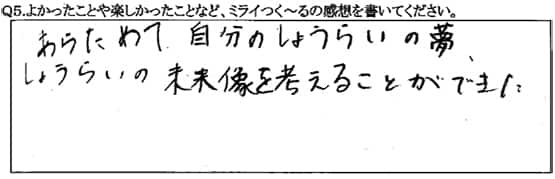 Q5.よかったことや楽しかったことなど、ミライつく～るの感想を書いてください。
あらためて 自分のしょうらいの夢、
しょうらいの未来像を考えることができた